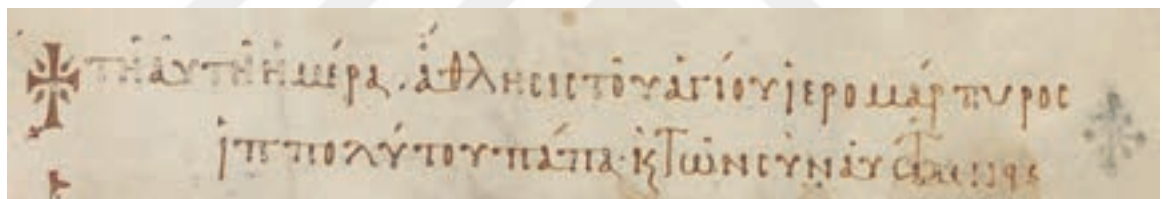 ✝ τῆ ἀυτῆ ἡμέρα. ἄθλησις τοῦ ἁγίου ἱερομάρτυρος
ἱππολύτου πάπα κ τῶν σὺν ἀυ